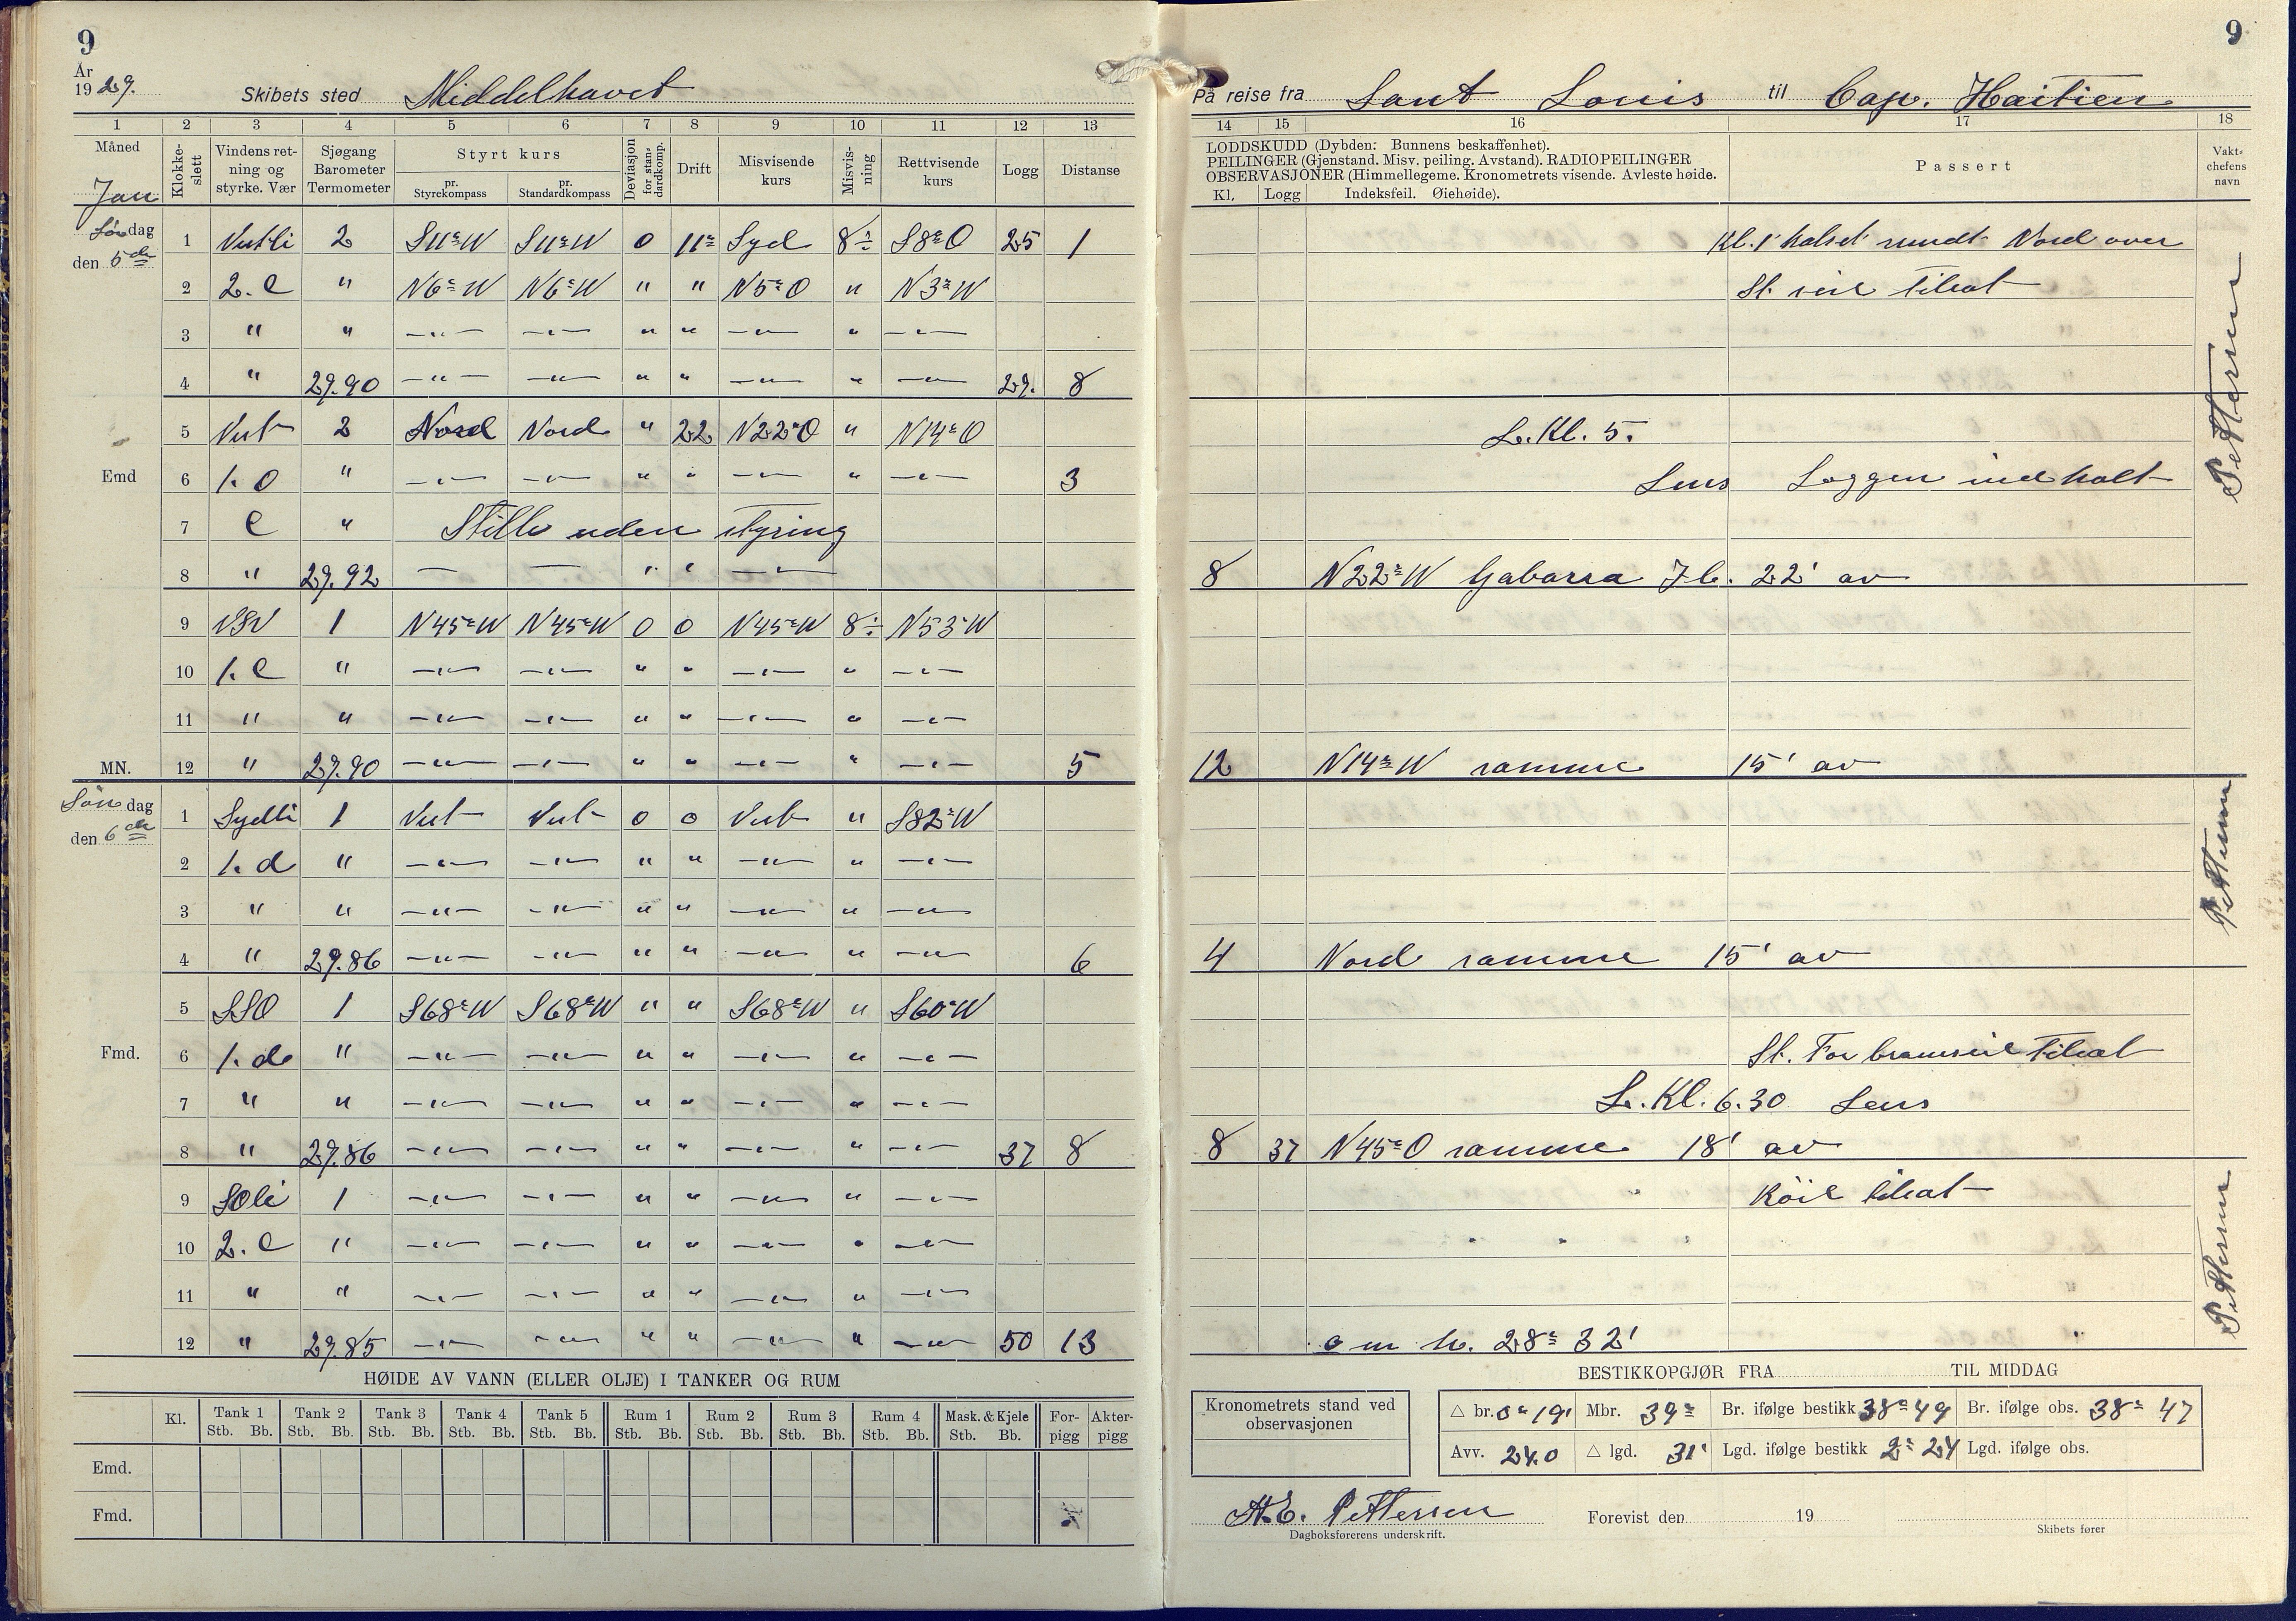 9
År
1929. Skibets sted Middelhavet
1 2 3 4 5 6 7 8 9 10 11 12 13
Måned Klokkeslett Vindens retning og styrke. Vær Sjøgang Barometer Termometer Styrt kurs pr. Styrekompass pr. Standardkompass Deviasjon for standardkomp. Drift Misvisende kurs Misvisning Rettvisende kurs Logg Distanse
Jan
Lördag den 5te
1 Vestli 2 S11°W S11°W 0 11° Syd 8÷ S8°O 25 1
2 2. C " N6°W N6°W " " N5°O " N3°W
3 " " —"— —"— " " —"— " —"—
4 " 29.90 —"— —"— " " —"— " —"— 29. 8
5 Vest 2 Nord Nord " 22 N22°O " N14°O
Emd 6 1. O " —"— —"— " " —"— " —"— 3
7 C " Stille uden styring
8 " 29.92 — — " " —"—
9 VSV 1 N45°W N45°W 0 0 N45°W 8÷ N53°W
10 1. C " —"— —"— " " —"— " —"—
11 " " —"— —"— " " —"— " —"—
MN. 12 " 29.90 —"— —"— " " —"— " —"— 5
Søndag den 6te
1 Sydli 1 Vest Vest 0 0 Vest " S82°W
2 1. d " —"— —"— " " —"— " —"—
3 " " —"— —"— " " —"— " —"—
4 " 29.86 —"— —"— " " —"— " —"— 6
5 SSO 1 S68°W S68°W " " S68°W " S60°W
Fmd. 6 1. d " —"— —"— " " —"— " —"—
7 " " —"— —"— " " —"— " —"—
8 " 29.86 —"— —"— " " —"— " —"— 37 8
9 SOli 1 —"— —"— " " —"— " —"—
10 2. C " —"— —"— " " —"— " —"—
11 " " —"— —"— " " —"— " —"—
12 " 29.85 —"— —"— " " —"— " —"— 50 13
HØIDE AV VANN (ELLER OLJE) I TANKER OG RUM
Kl. Tank 1 Tank 2 Tank 3 Tank 4 Tank 5 Rum 1 Rum 2 Rum 3 Rum 4 Mask. & Kjele For-pigg Akter-pigg
Stb. Bb. Stb. Bb. Stb. Bb. Stb. Bb. Stb. Bb. Stb. Bb. Stb. Bb. Stb. Bb. Stb. Bb. Stb. Bb.
Emd.
Fmd.
9
På reise fra Sant Louis til Cap. Haitien
14 15 16 17 18
LODDSKUDD (Dybden: Bunnens beskaffenhet).
PEILINGER (Gjenstand. Misv. peiling. Avstand). RADIOPEILINGER
OBSERVASJONER (Himmellegeme. Kronometrets visende. Avleste høide.
Kl. Logg Indeksfeil. Øiehøide).
Passert
Vaktchefens navn
Kl. 1 halset rundt Nord over
St. seil tilsat
L. Kl. 5.
Lens Loggen indhalt
Pettersen
8 N22°W Gabarra Fb. 22' av
12 N14°W samme 15' av
Pettersen
4 Nord samme 15' av
St. For bramseil tilsat
L. Kl. 6.30 Lens
8 37 N45°O samme 18' av
Röil tilsat
Pettersen
o m h. 28° 32'
BESTIKKOPGJØR FRA TIL MIDDAG
Kronometrets stand ved observasjonen
△ br. 0° 19' Mbr. 39° Br. ifølge bestikk 38° 49 Br. ifølge obs. 38° 47
Avv. 24.0 △ lgd. 31' Lgd. ifølge bestikk 2° 24 Lgd. ifølge obs.
H.E. Pettersen Forevist den 19
Dagboksførerens underskrift. Skibets fører